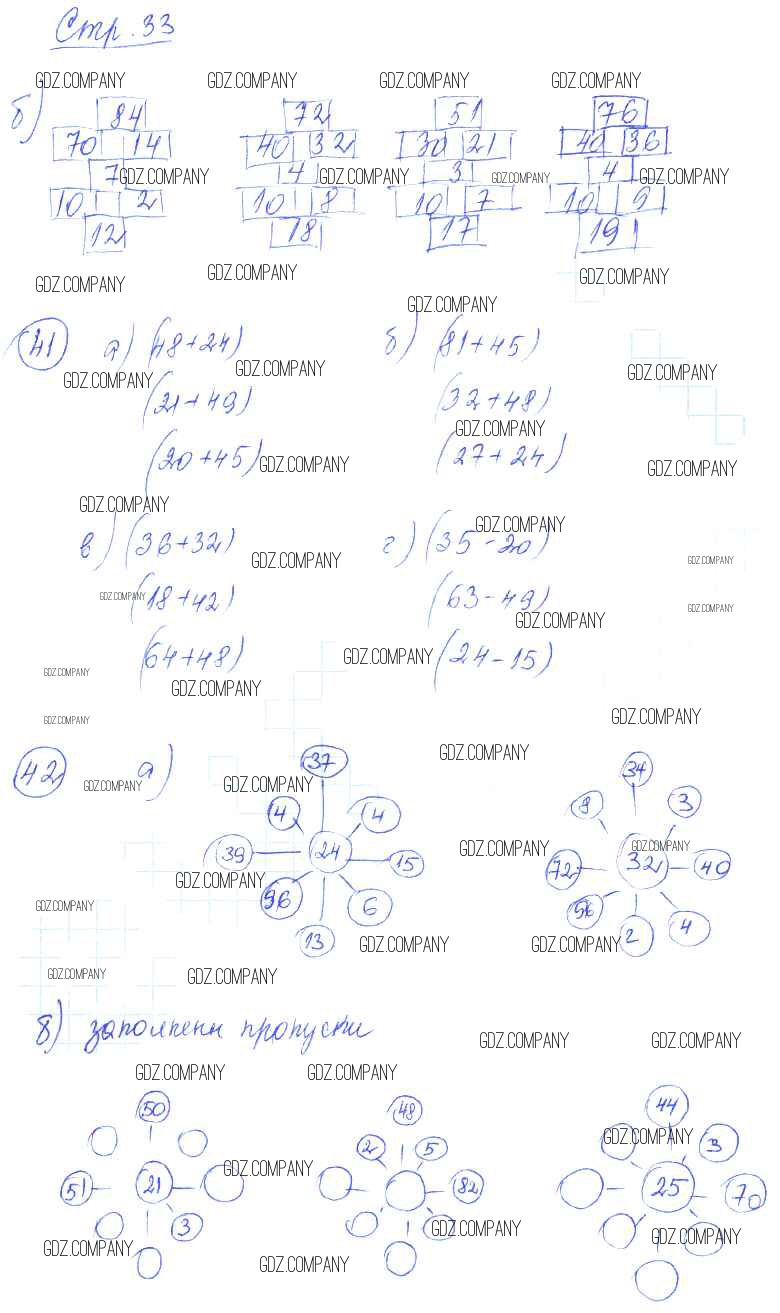 Стр. 33
GDZ.COMPANY GDZ.COMPANY GDZ.COMPANY GDZ.COMPANY
б) 84 72 51 76
70 14 40 32 30 21 40 36
7 4 3 4
GDZ.COMPANY GDZ.COMPANY GDZ.COMPANY GDZ.COMPANY
10 2 10 8 10 7 10 9
12 18 17 19
GDZ.COMPANY GDZ.COMPANY GDZ.COMPANY
GDZ.COMPANY
41 а) (48+24) б) (81+45)
GDZ.COMPANY GDZ.COMPANY GDZ.COMPANY
(21+49) (32+48)
GDZ.COMPANY
(20+45) GDZ.COMPANY (27+24) GDZ.COMPANY
GDZ.COMPANY GDZ.COMPANY
в) (36+32) GDZ.COMPANY г) (35-20) GDZ.COMPANY
GDZ.COMPANY (18+42) (63-49) GDZ.COMPANY
GDZ.COMPANY
(64+48) GDZ.COMPANY (24-15)
GDZ.COMPANY GDZ.COMPANY
GDZ.COMPANY GDZ.COMPANY
42 а) 37 GDZ.COMPANY 34
GDZ.COMPANY GDZ.COMPANY
4 4 8 3
39 24 15 GDZ.COMPANY 72 32 GDZ.COMPANY 40
GDZ.COMPANY
96 6 56 4
GDZ.COMPANY
13 GDZ.COMPANY GDZ.COMPANY 2
GDZ.COMPANY GDZ.COMPANY
б) заполнены пропуски
GDZ.COMPANY GDZ.COMPANY
GDZ.COMPANY GDZ.COMPANY
50 48 44
2 5 GDZ.COMPANY 3
GDZ.COMPANY
51 21 82 25 70
3 GDZ.COMPANY GDZ.COMPANY
GDZ.COMPANY GDZ.COMPANY